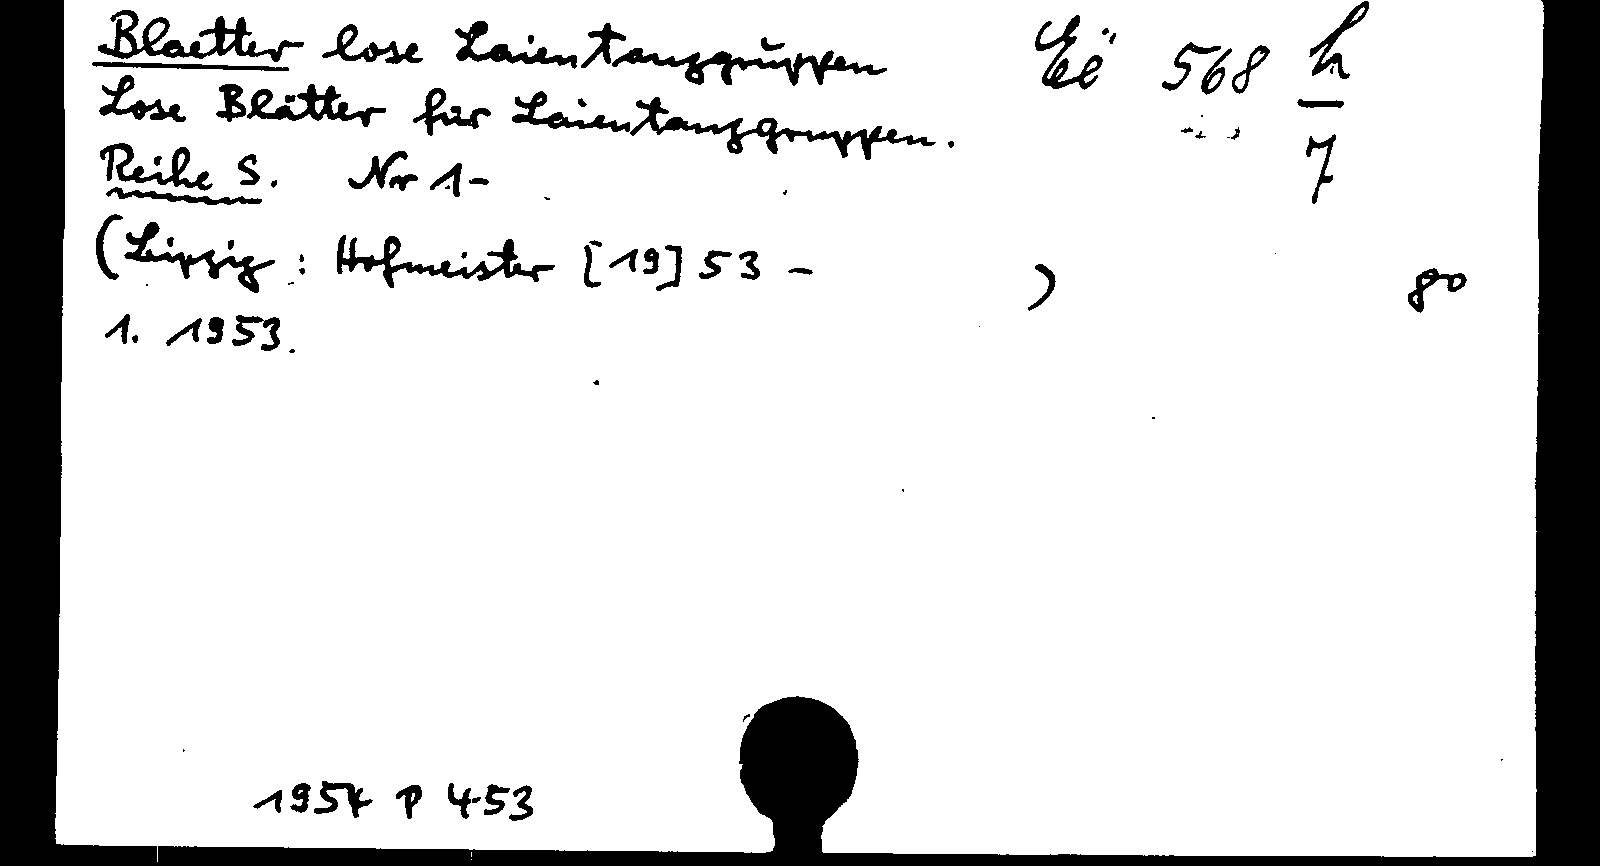 Blaetter lose Laientanzgruppen Eë 568 h
Lose Blätter für Laientanzgruppen. 7
Reihe S. Nr 1-
(Leipzig: Hofmeister [19]53 - ) 8°
1. 1953.
1954 P 453